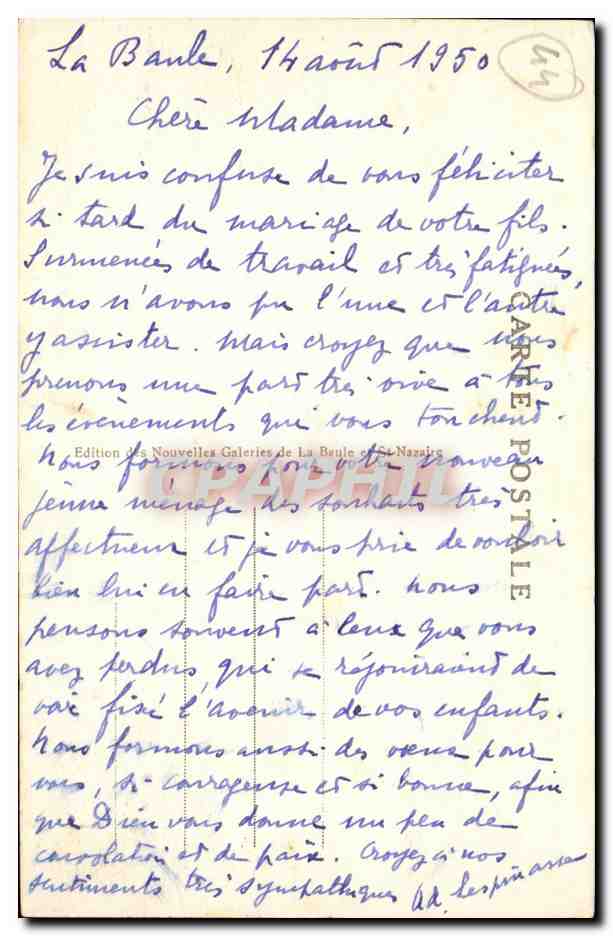 La Baule, 14 août 1950
44
Chère Madame,
Je suis confuse de vous féliciter
si tard du mariage de votre fils.
Surmenées de travail et très fatiguées,
nous n'avons pu l'une et l'autre
y assister. Mais croyez que nous
prenons une part très vive à tous
les évènements qui vous touchent.
Edition des Nouvelles Galeries de La Baule et St-Nazaire
Nous formons pour votre nouveau
jeune ménage des souhaits très
affectueux et je vous prie de vouloir
bien lui en faire part. Nous
pensons souvent à ceux que vous
avez perdus, qui se réjouiraient de
voir fixé l'avenir de vos enfants.
Nous formons aussi des vœux pour
vous, si courageuse et si bonne, afin
que Dieu vous donne un peu de
consolation et de paix. Croyez à nos
sentiments très sympathiques Ad. Lespinasse
CARTE POSTALE
CPAPHIL